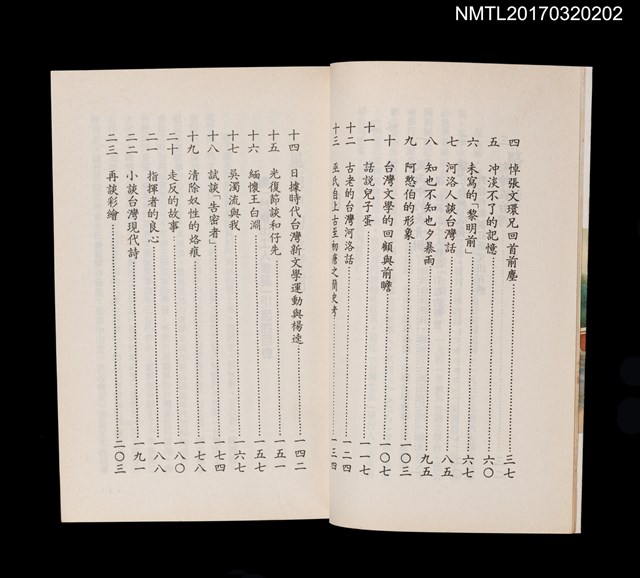 NMTL20170320202
四 悼張文環兄回首前塵……三七
五 冲淡不了的記憶……六〇
六 未寫的「黎明前」……六七
七 河洛人談台灣話……八五
八 知也不知也夕暴雨……九五
九 阿憨伯的形象……一〇三
十 台灣文學的回顧與前瞻……一〇七
十一 話說兒子蛋……一一七
十二 古老的台灣河洛話……一二四
十三 巫祇自上古至初唐之簡史考……一三四
十四 日據時代台灣新文學運動與楊逵……一四二
十五 光復節談和仔先……一五一
十六 緬懷王白淵……一五七
十七 吳濁流與我……一六七
十八 試談「告密者」……一七四
十九 清除奴性的烙痕……一七八
二十 走反的故事……一八〇
二一 指揮者的良心……一八八
二二 小談台灣現代詩……一九一
二三 再談彩繪……二〇三